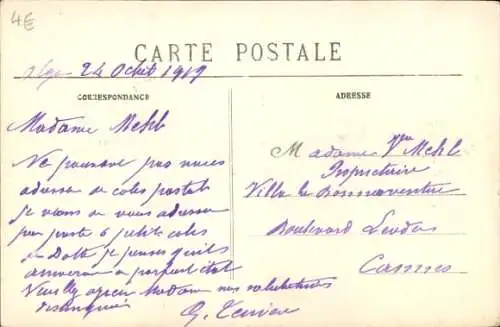 4€
CARTE POSTALE
24 Octob 1919
CORRESPONDANCE
ADRESSE
Madame Mehl
Ne pouvant pas
adresse colis postal
je viens vous adresser
par poste 6 petits colis
je pense qu'ils
arriveront parfait état
Veuillez agréer Madame nos salutations
distinguées
Madame Vve Mehl
Propriétaire
Villa la Bonnaventure
Boulevard
Cannes